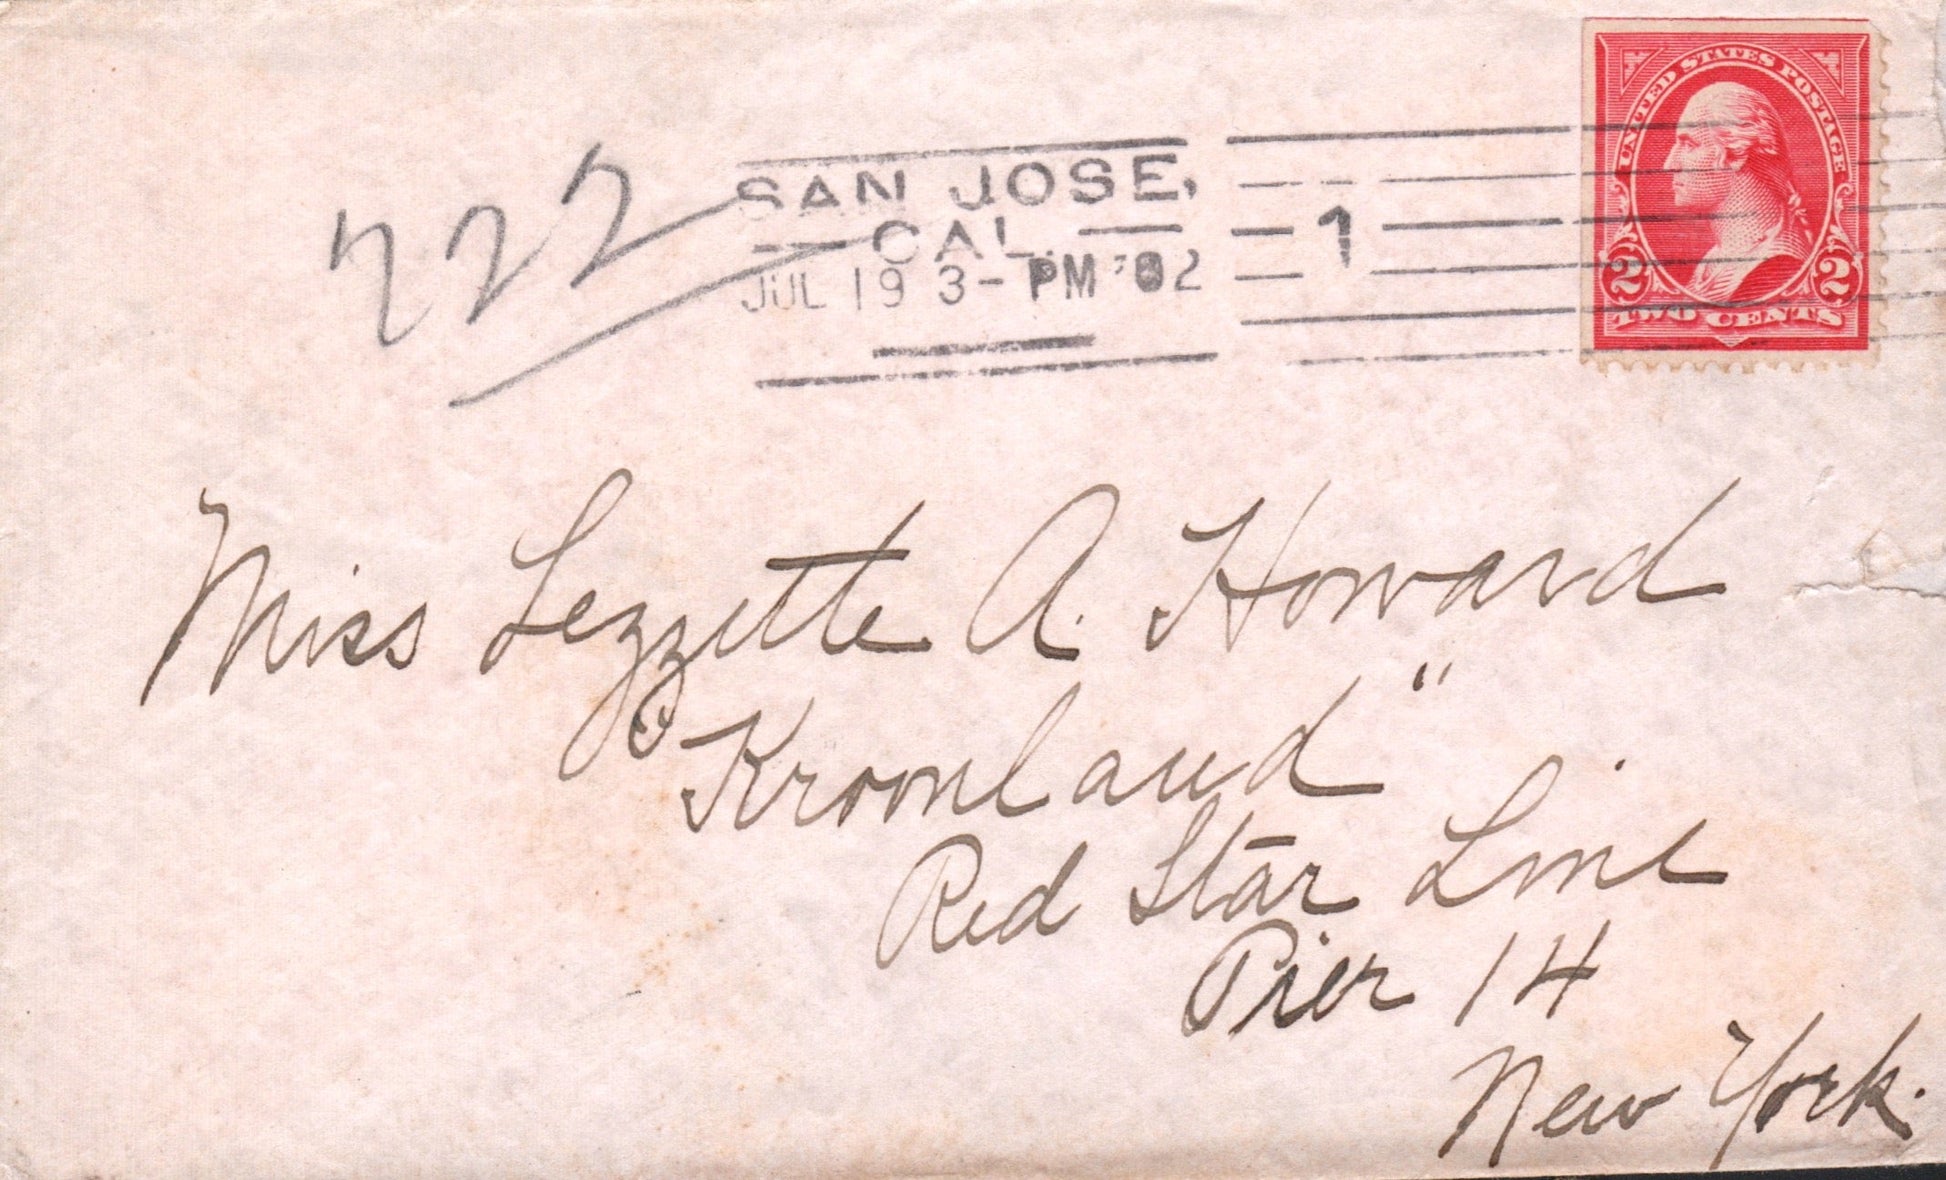 UNITED STATES POSTAGE
2 2
TWO CENTS
SAN JOSE,
CAL.
JUL 19 3-PM '02
1
222
Miss Lezzette A. Howard
"Kroonland"
Red Star Line
Pier 14
New York.